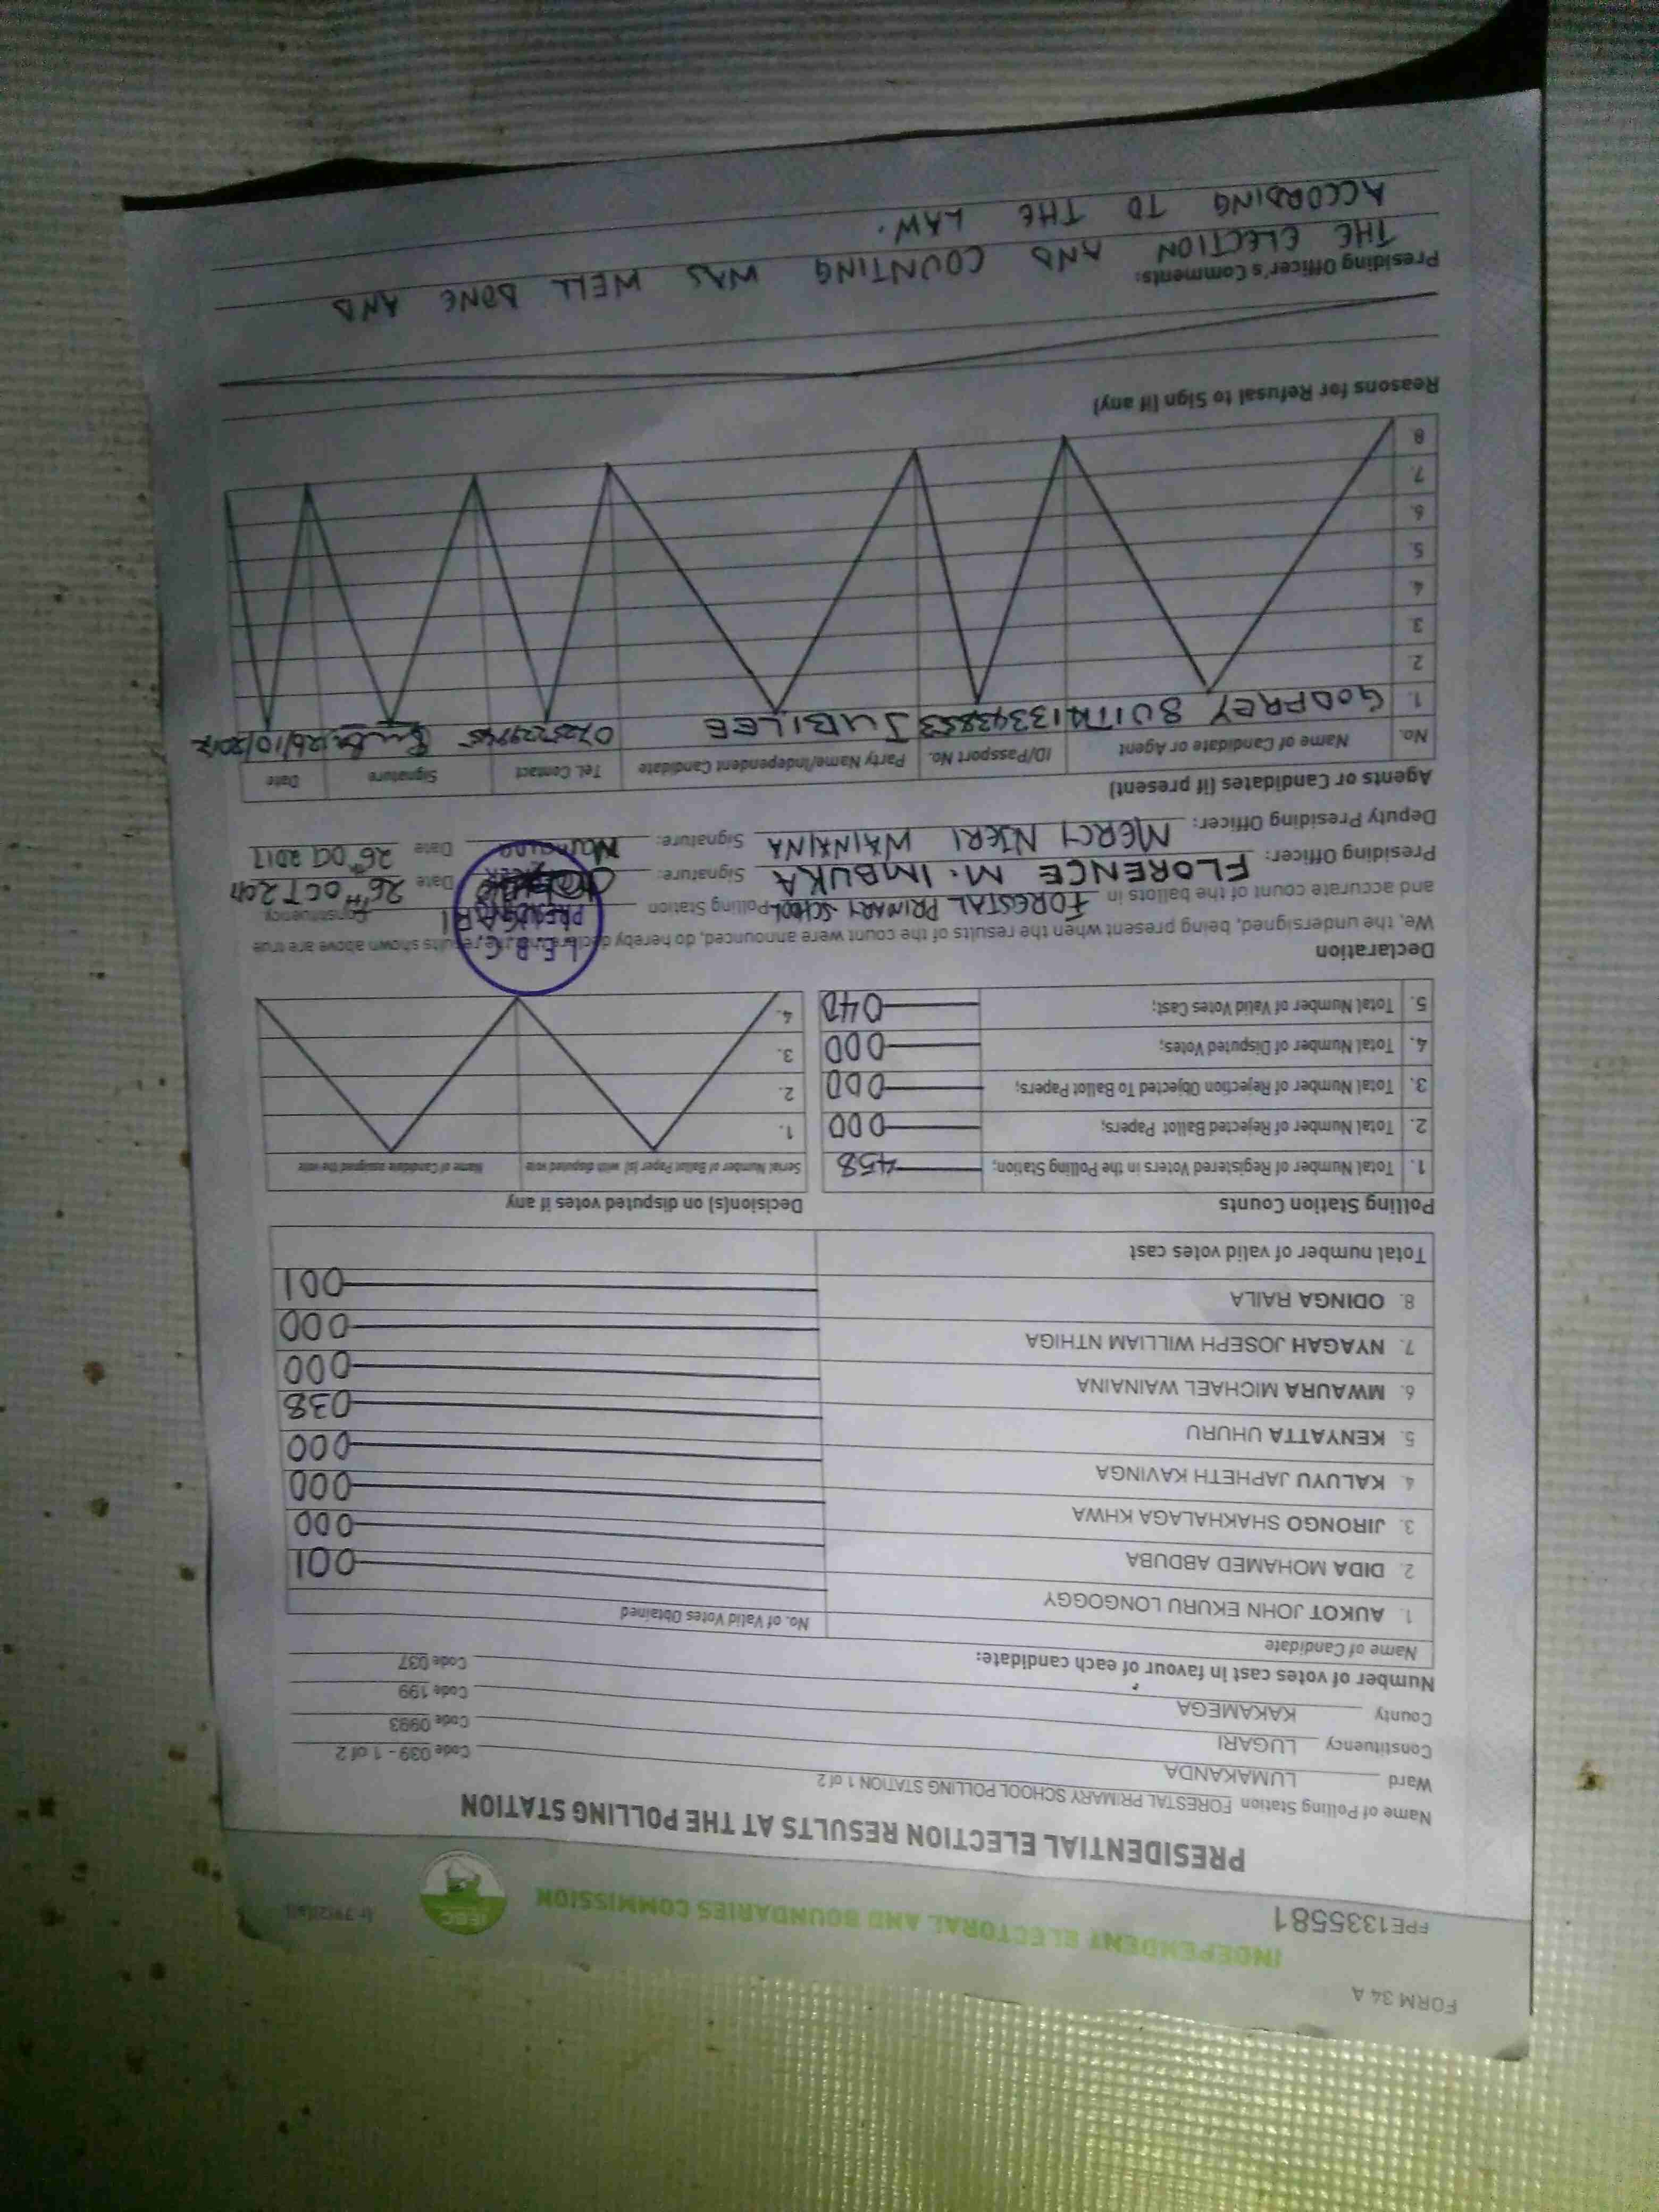 FORM 34 A
INDEPENDENT ELECTORAL AND BOUNDARIES COMMISSION
IEBC
FPE1335581
PRESIDENTIAL ELECTION RESULTS AT THE POLLING STATION
Name of Polling Station FORESTAL PRIMARY SCHOOL POLLING STATION 1 of 2 Code 039 - 1 of 2
Ward LUMAKANDA Code 0993
Constituency LUGARI Code 199
County KAKAMEGA Code 037
Number of votes cast in favour of each candidate:
Name of Candidate No. of Valid Votes Obtained
1. AUKOT JOHN EKURU LONGOGGY 001
2. DIDA MOHAMED ABDUBA 000
3. JIRONGO SHAKHALAGA KHWA 000
4. KALUYU JAPHETH KAVINGA 000
5. KENYATTA UHURU 038
6. MWAURA MICHAEL WAINAINA 000
7. NYAGAH JOSEPH WILLIAM NTHIGA 000
8. ODINGA RAILA 001
Total number of valid votes cast
Polling Station Counts
1. Total Number of Registered Voters in the Polling Station; 458
2. Total Number of Rejected Ballot Papers; 000
3. Total Number of Rejection Objected To Ballot Papers; 000
4. Total Number of Disputed Votes; 000
5. Total Number of Valid Votes Cast; 040
Decision(s) on disputed votes if any
Serial Number of Ballot Paper (s) with disputed vote Name of Candidate assigned the vote
1.
2.
3.
4.
Declaration
We, the undersigned, being present when the results of the count were announced, do hereby declare that the results shown above are true
and accurate count of the ballots in FORESTAL PRIMARY SCHOOL Polling Station LUGARI Constituency
I.E.B.C.
Presiding Officer: FLORENCE M. IMBUKA Signature: Date 26TH OCT 2017
Deputy Presiding Officer: MERCY NJERI WAINAINA Signature: Date 26TH Oct 2017
Agents or Candidates (if present)
No. Name of Candidate or Agent ID/Passport No. Party Name/Independent Candidate Tel. Contact Signature Date
1. GODFREY 13343853 JUBILEE 26/10/2017
2.
3.
4.
5.
6.
7.
8.
Reasons for Refusal to Sign (if any)
Presiding Officer's Comments:
THE ELECTION AND COUNTING WAS WELL DONE AND
ACCORDING TO THE LAW.